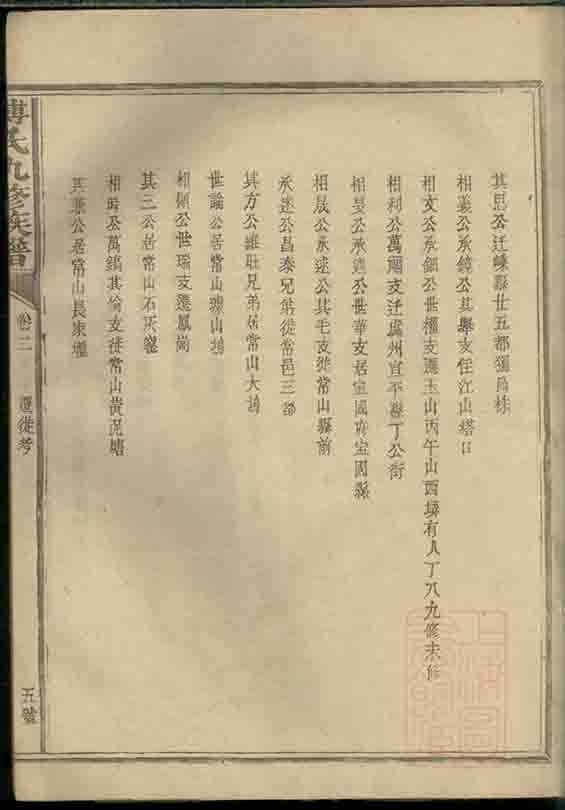 其思公迁嵊縣廿五都獨烏株
相義公承鏡公其舉支住江山塔口
相文公承銀公世權支遷玉山丙午山西墳有人丁八九修未修
相利公萬 支迁處州宣平縣丁公街
相旻公承 公世華支居宣國府宣國縣
相晟公承述公其毛支徙常山縣前
承述公昌泰兄弟徙常邑三都
其方公維 兄弟居常山大
世論公居常山璩山塢
相 公世瑞支遷鳳崗
其三公居常山石灰
相時公萬鎬其倫支徙常山黄泥塘
其兼公居常山長來壠
傅氏九修族譜
卷二
遷徙考
五號